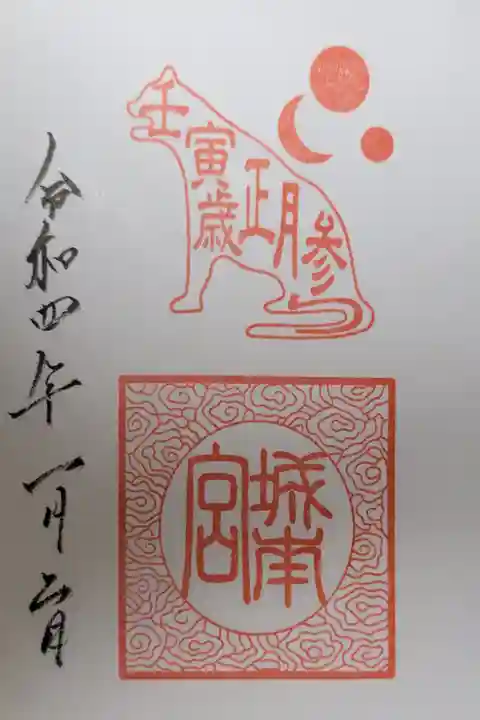 壬寅歳正月参
城南宮
令和四年一月二日